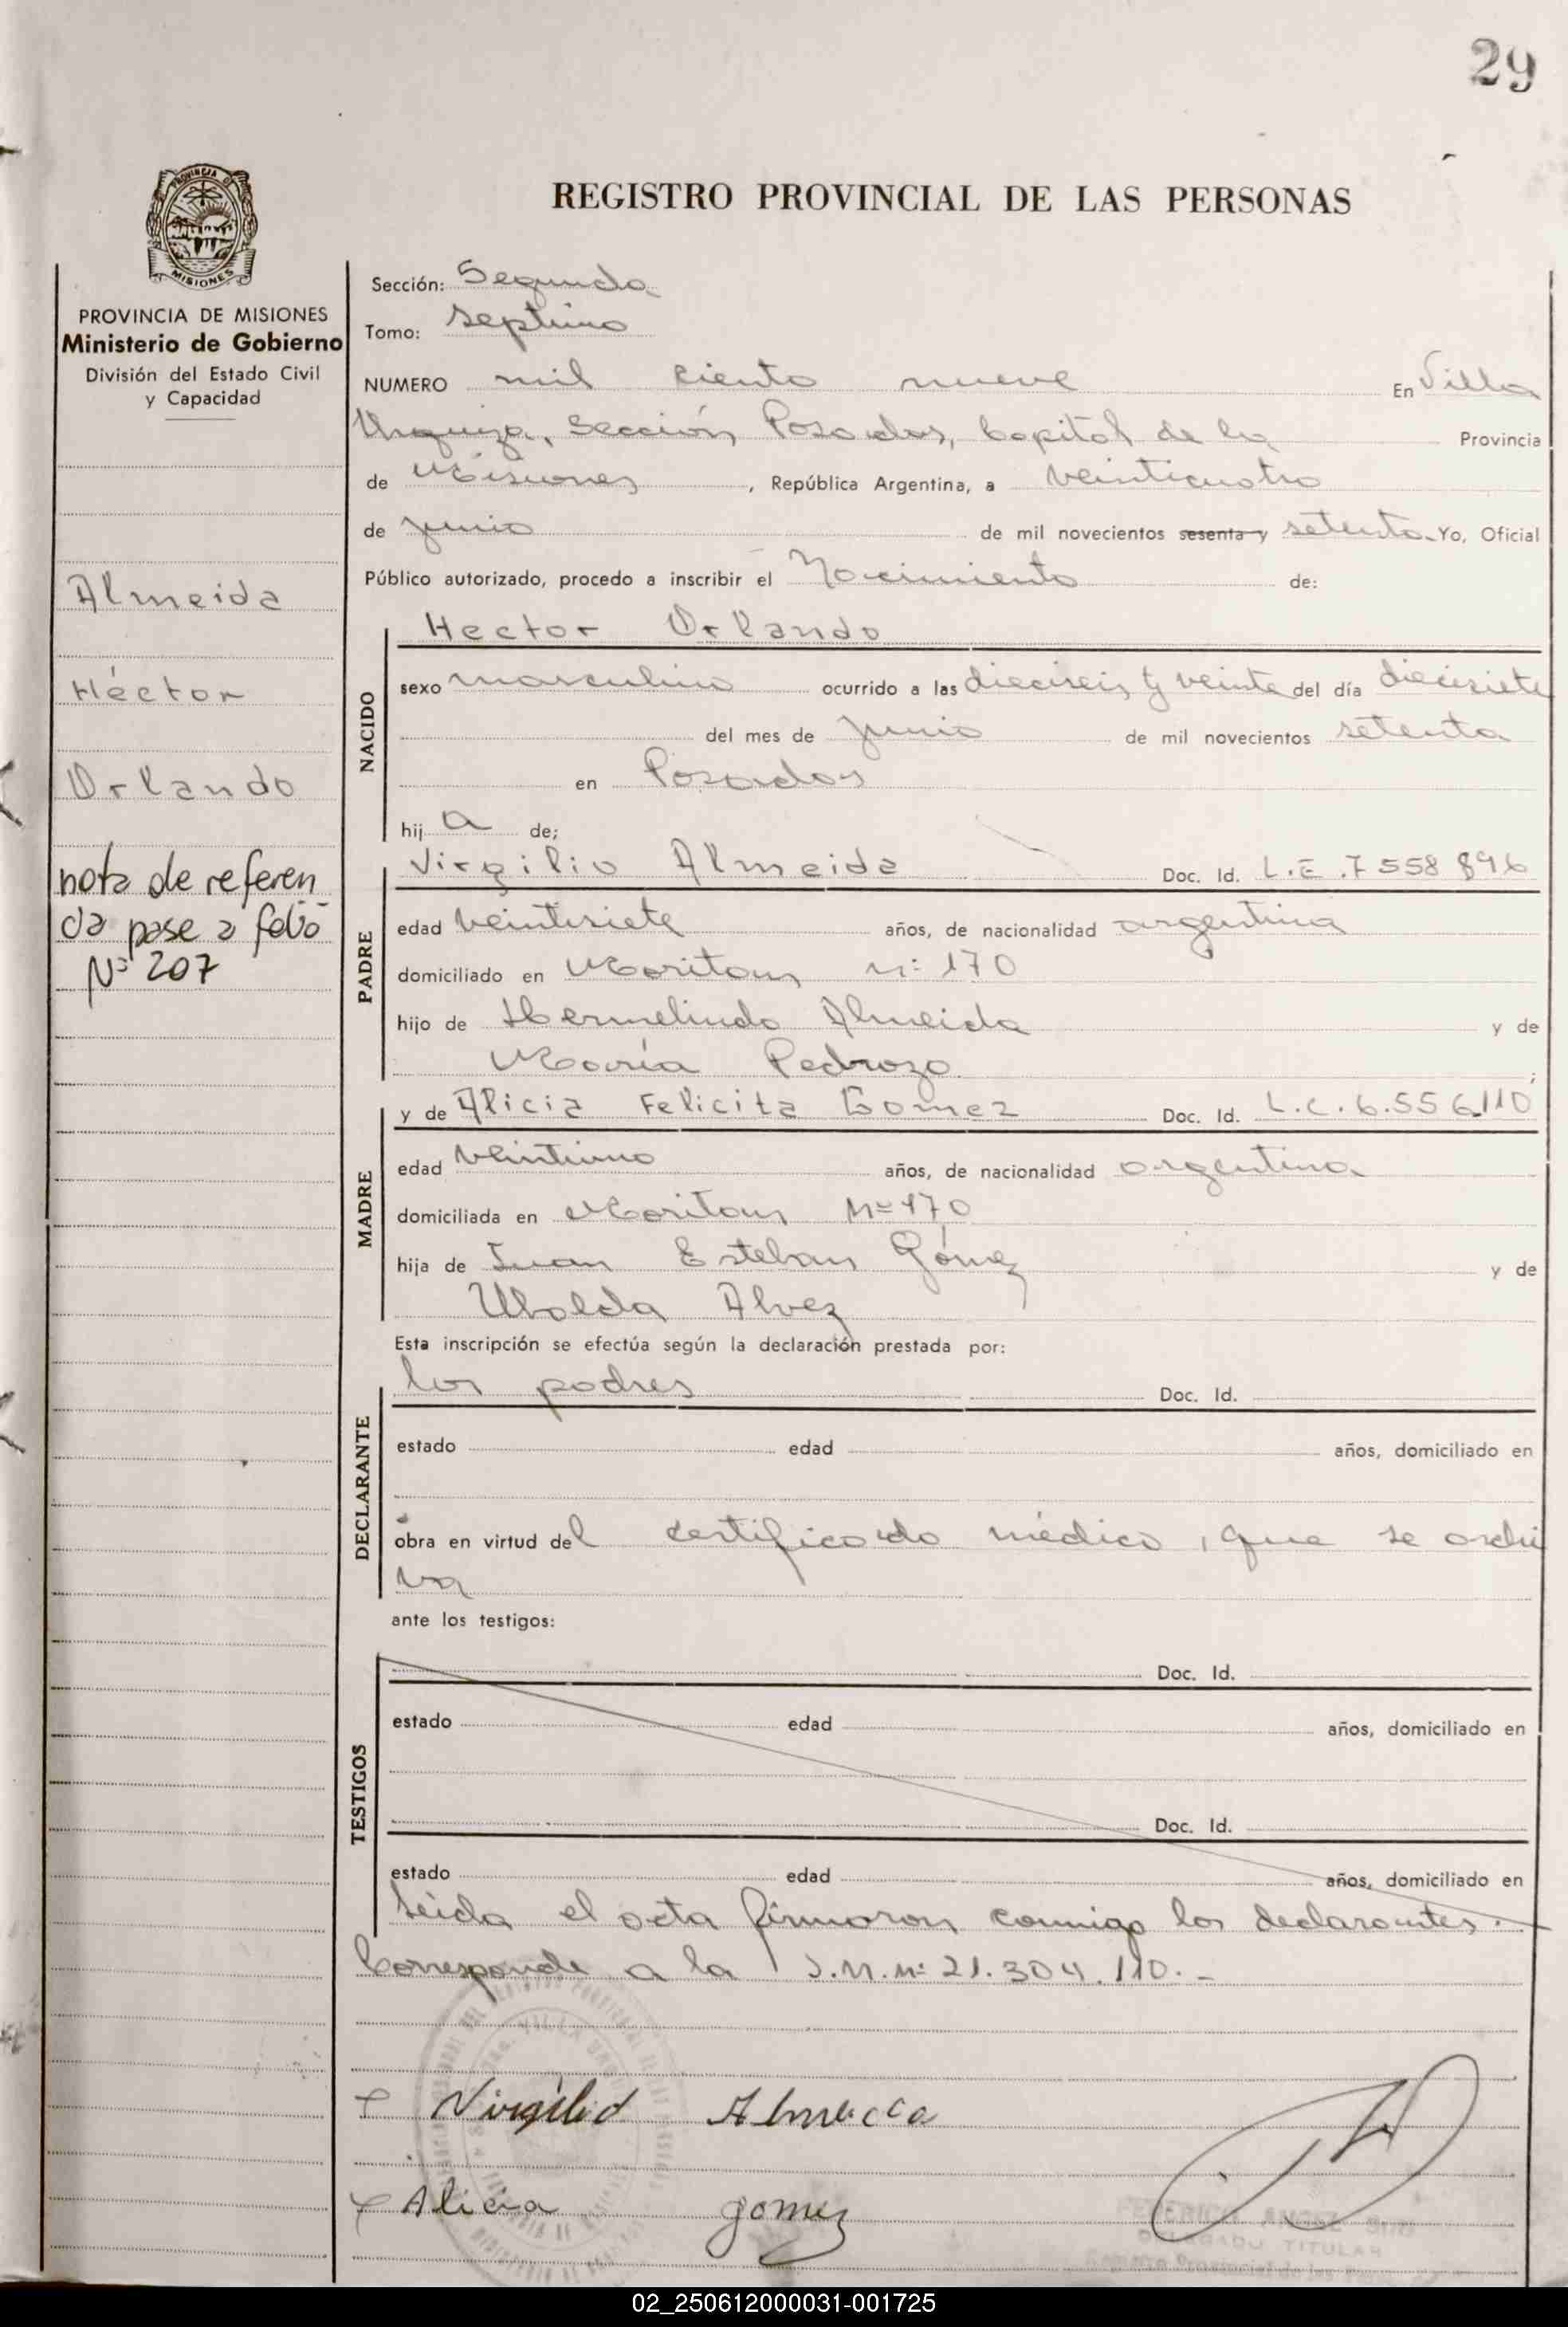 29
REGISTRO PROVINCIAL DE LAS PERSONAS
PROVINCIA DE MISIONES
Ministerio de Gobierno
División del Estado Civil
y Capacidad
Almeida
Héctor
Orlando
nota de referen
cia pase a folio
Nº 207
Sección: Segunda
Tomo: Septimo
NUMERO mil ciento nueve En Villa
Urquiza, Sección Posadas, Capital de la Provincia
de Misiones, República Argentina, a veinticuatro
de junio de mil novecientos sesenta y setenta Yo, Oficial
Público autorizado, procedo a inscribir el Nacimiento de:
NACIDO
Hector Orlando
sexo masculino ocurrido a las dieciseis y veinte del día diecisiete
del mes de junio de mil novecientos setenta
en Posadas
hij a de;
PADRE
Virgilio Almeida Doc. Id. L.E.7558896
edad veintisiete años, de nacionalidad argentina
domiciliado en Nº 170
hijo de Hermelindo Almeida y de
María Pedrozo
MADRE
y de Alicia Felicita Gomez Doc. Id. L.C.6.556.110
edad veintiuno años, de nacionalidad argentina
domiciliada en Nº 170
hija de Juan Esteban Gómez y de
Ubalda Alvez
Esta inscripción se efectúa según la declaración prestada por:
DECLARANTE
los padres Doc. Id.
estado edad años, domiciliado en
obra en virtud del certificado médico, que se archi
va
ante los testigos:
TESTIGOS
Doc. Id.
estado edad años, domiciliado en
Doc. Id.
estado edad años, domiciliado en
Leida el acta firmaron conmigo los declarantes.
Corresponde a la Nº 21.304.110.-
Virgilio Almeida
Alicia gomez
DELEGADO TITULAR
02_250612000031-001725